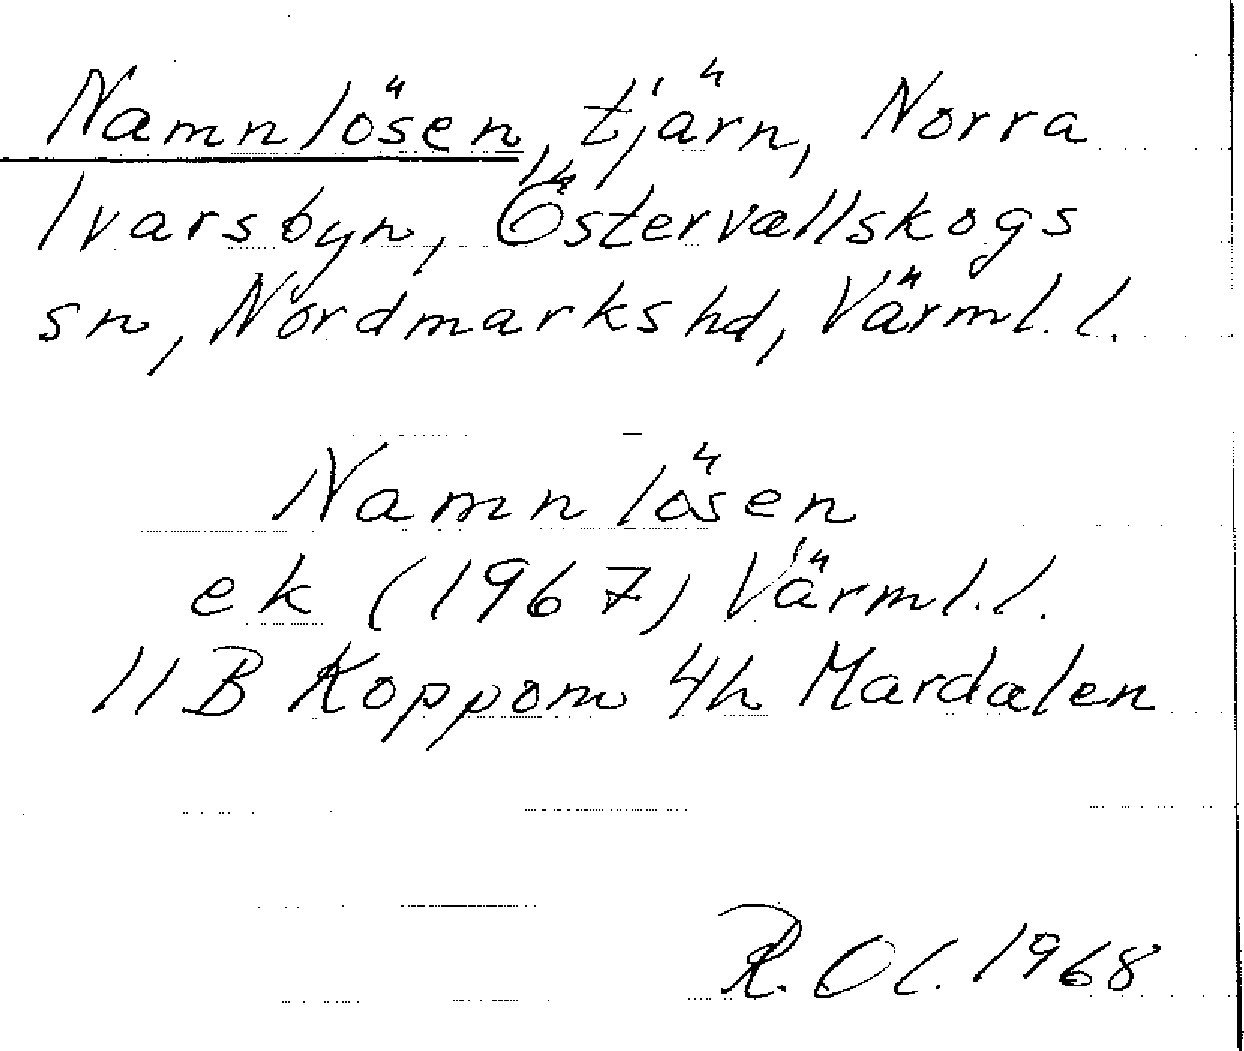 Namnlösen, tjärn, Norra
Ivarsbyn, Östervallskogs
sn, Nordmarks hd, Värml. l.
Namnlösen
ek (1967) Värml. l.
11 B Koppom 4h Mardalen
R. Ol. 1968